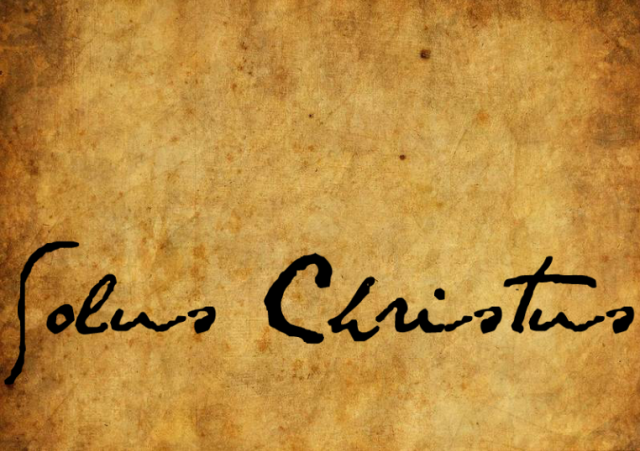 Solus Christus